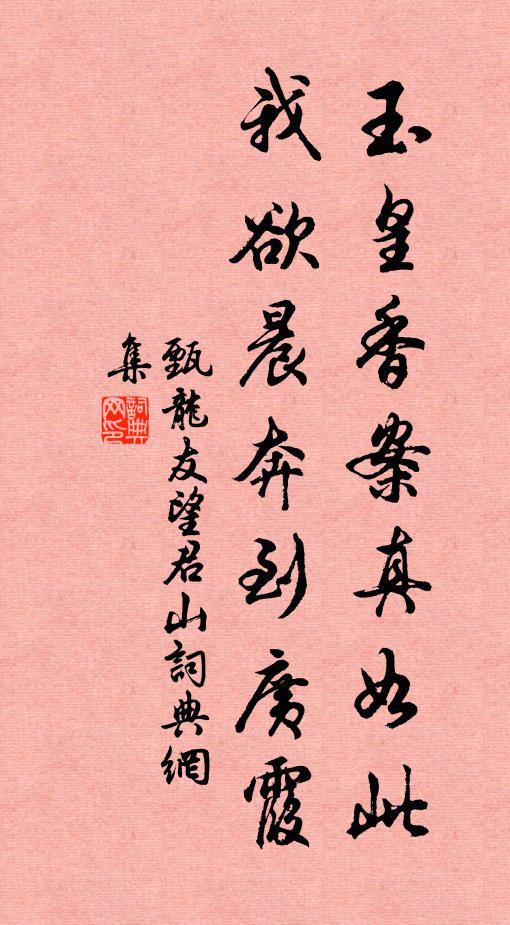 玉皇香案真如此
我欲晨奔到廣霞
甄龍友望君山詞典網
集
詞典
网印